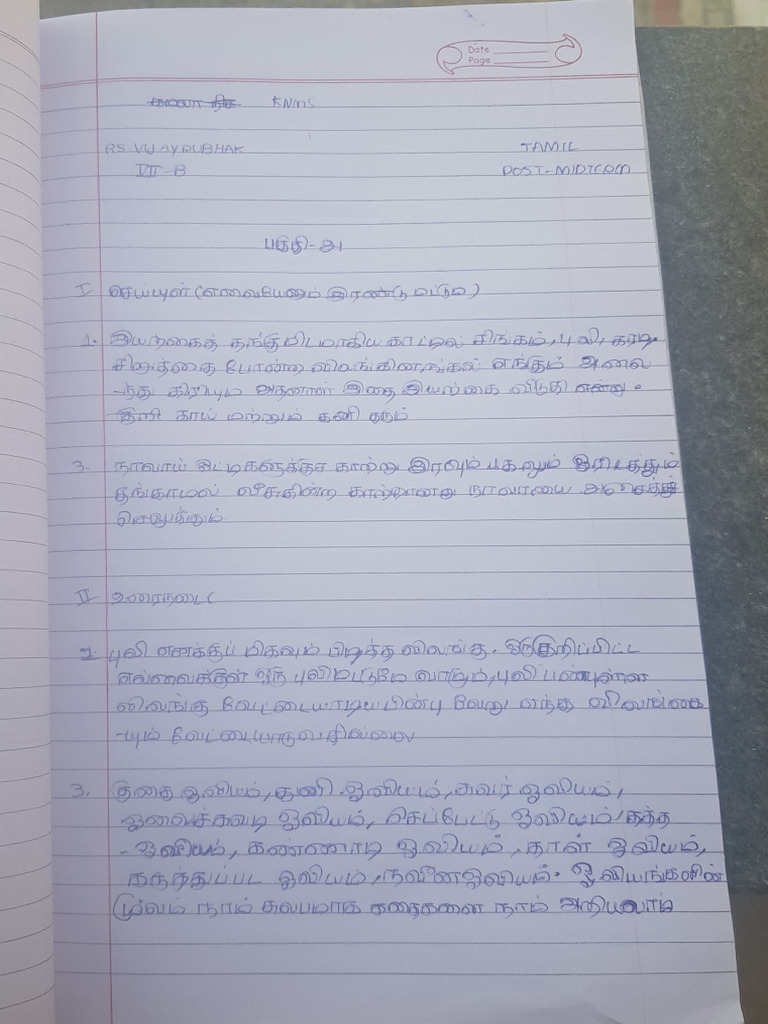 Date
Page
KNMS
RS. VIJAY RUBHAK TAMIL
VII - B POST-MIDTERM
பகுதி-அ
I செய்யுள் (எவையேனும் இரண்டு மட்டும்)
1. இயற்கைத் தங்குமிடமாகிய காட்டில் சிங்கம், புலி, கரடி,
சிறுத்தை போன்ற விலங்கினங்கல் எங்கும் அலை
-ந்து திரியும் அதனால் இதை இயற்கை விடுதி
காய் மற்றும் கனி தரும்
3. நாவாய் ஓட்டிகளுக்குச காற்று இரவும் பகலும்
தங்காமல் வீசுகின்ற காற்றானது நாவாயை அசைத்துச்
செலுத்தும்.
II உரைநடை
2. புலி எனக்குப் மிகவும் பிடித்த விலங்கு. ஒரு குறிப்பிட்ட
எல்லைக்குள் ஒரு புலிமட்டுமே வாழும், புலி பண்புள்ள
விலங்கு வேட்டையாடிய பின்பு வேறு எந்த விலங்கை
-யும் வேட்டையாடுவதில்லை
3. குகை ஓவியம், துணி ஓவியம், சுவர் ஓவியம்,
ஓலைச்சுவடி ஓவியம், செப்பேட்டு ஓவியம், தந்த
- ஓவியம், கண்ணாடி ஓவியம், தாள் ஓவியம்,
கருத்துப்பட ஓவியம், நவீன ஓவியம். ஓவியங்களின்
மூலம் நாம் சுலபமாக கதைகளை நாம் அறியலாம்